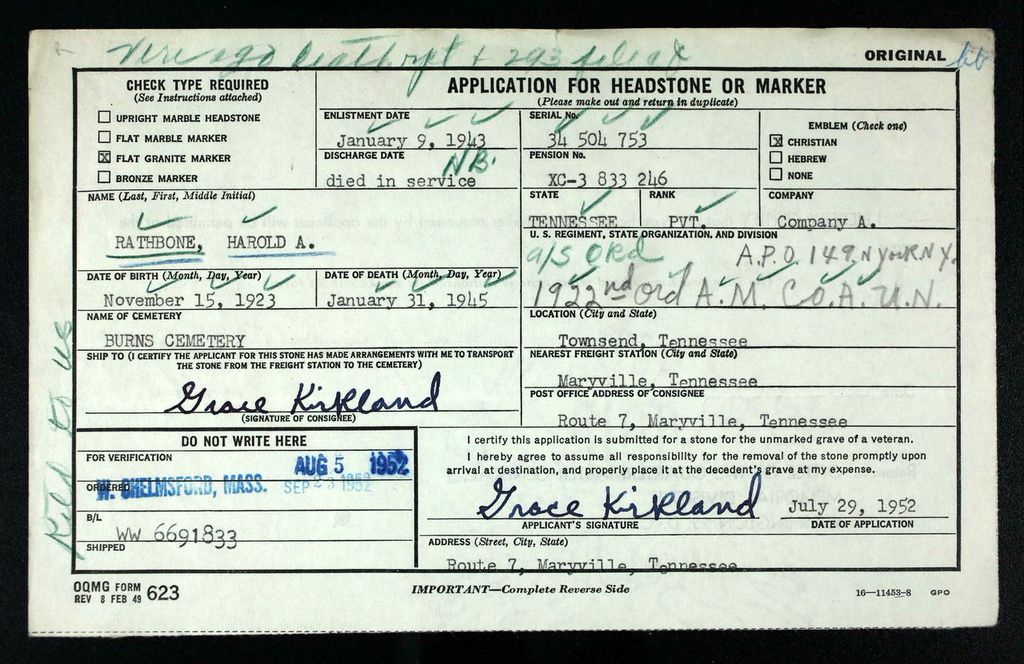 ORIGINAL
CHECK TYPE REQUIRED
(See Instructions attached)
UPRIGHT MARBLE HEADSTONE
FLAT MARBLE MARKER
FLAT GRANITE MARKER
BRONZE MARKER
APPLICATION FOR HEADSTONE OR MARKER
(Please make out and return in duplicate)
ENLISTMENT DATE
January 9, 1943
DISCHARGE DATE
died in service
SERIAL No.
34 504 753
PENSION No.
XC-3 833 246
EMBLEM (Check one)
CHRISTIAN
HEBREW
NONE
NAME (Last, First, Middle Initial)
RATHBONE, HAROLD A.
STATE
TENNESSEE
RANK
PVT.
COMPANY
Company A.
U. S. REGIMENT, STATE ORGANIZATION, AND DIVISION
a/s Ord A.P.O. 149 N York N.Y.
1922nd Ord A.M. Co. A. U.N.
DATE OF BIRTH (Month, Day, Year)
November 15, 1923
DATE OF DEATH (Month, Day, Year)
January 31, 1945
NAME OF CEMETERY
BURNS CEMETERY
LOCATION (City and State)
Townsend, Tennessee
SHIP TO (I CERTIFY THE APPLICANT FOR THIS STONE HAS MADE ARRANGEMENTS WITH ME TO TRANSPORT
THE STONE FROM THE FREIGHT STATION TO THE CEMETERY)
Grace Kirkland
(SIGNATURE OF CONSIGNEE)
NEAREST FREIGHT STATION (City and State)
Maryville, Tennessee
POST OFFICE ADDRESS OF CONSIGNEE
Route 7, Maryville, Tennessee
DO NOT WRITE HERE
FOR VERIFICATION
AUG 5 1952
ORDERED
W. CHELMSFORD, MASS. SEP 23 1952
B/L
WW 6691833
SHIPPED
I certify this application is submitted for a stone for the unmarked grave of a veteran.
I hereby agree to assume all responsibility for the removal of the stone promptly upon
arrival at destination, and properly place it at the decedent's grave at my expense.
Grace Kirkland July 29, 1952
APPLICANT'S SIGNATURE DATE OF APPLICATION
ADDRESS (Street, City, State)
Route 7, Maryville, Tennessee
OQMG FORM
REV 8 FEB 49 623
IMPORTANT—Complete Reverse Side
16—11453-8 GPO